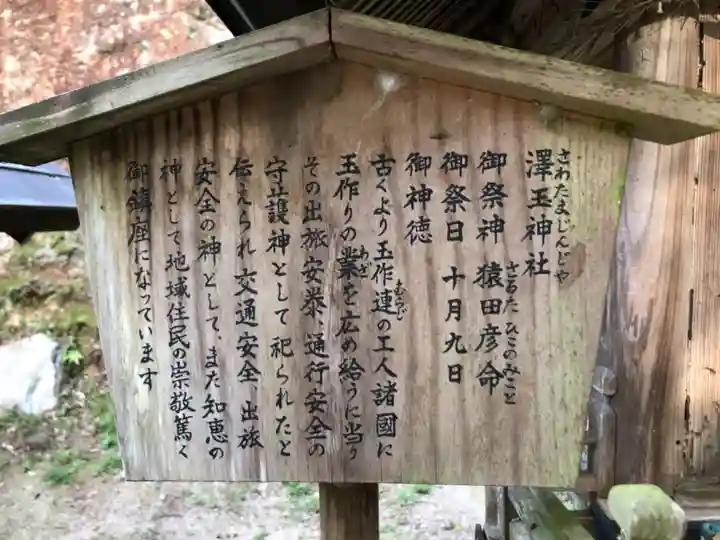 さわたまじんじゃ
澤玉神社
御祭神 猿田彦命
さるたひこのみこと
御祭日 十月九日
御神徳
古くより玉作連の工人諸國に
むらじ
玉作りの業を広め給うに当り
わざ
その出旅安泰、通行安全の
守護神として祀られたと
伝えられ交通安全、出旅
安全の神として、また知恵の
神として地域住民の崇敬篤く
御鎮座になっています